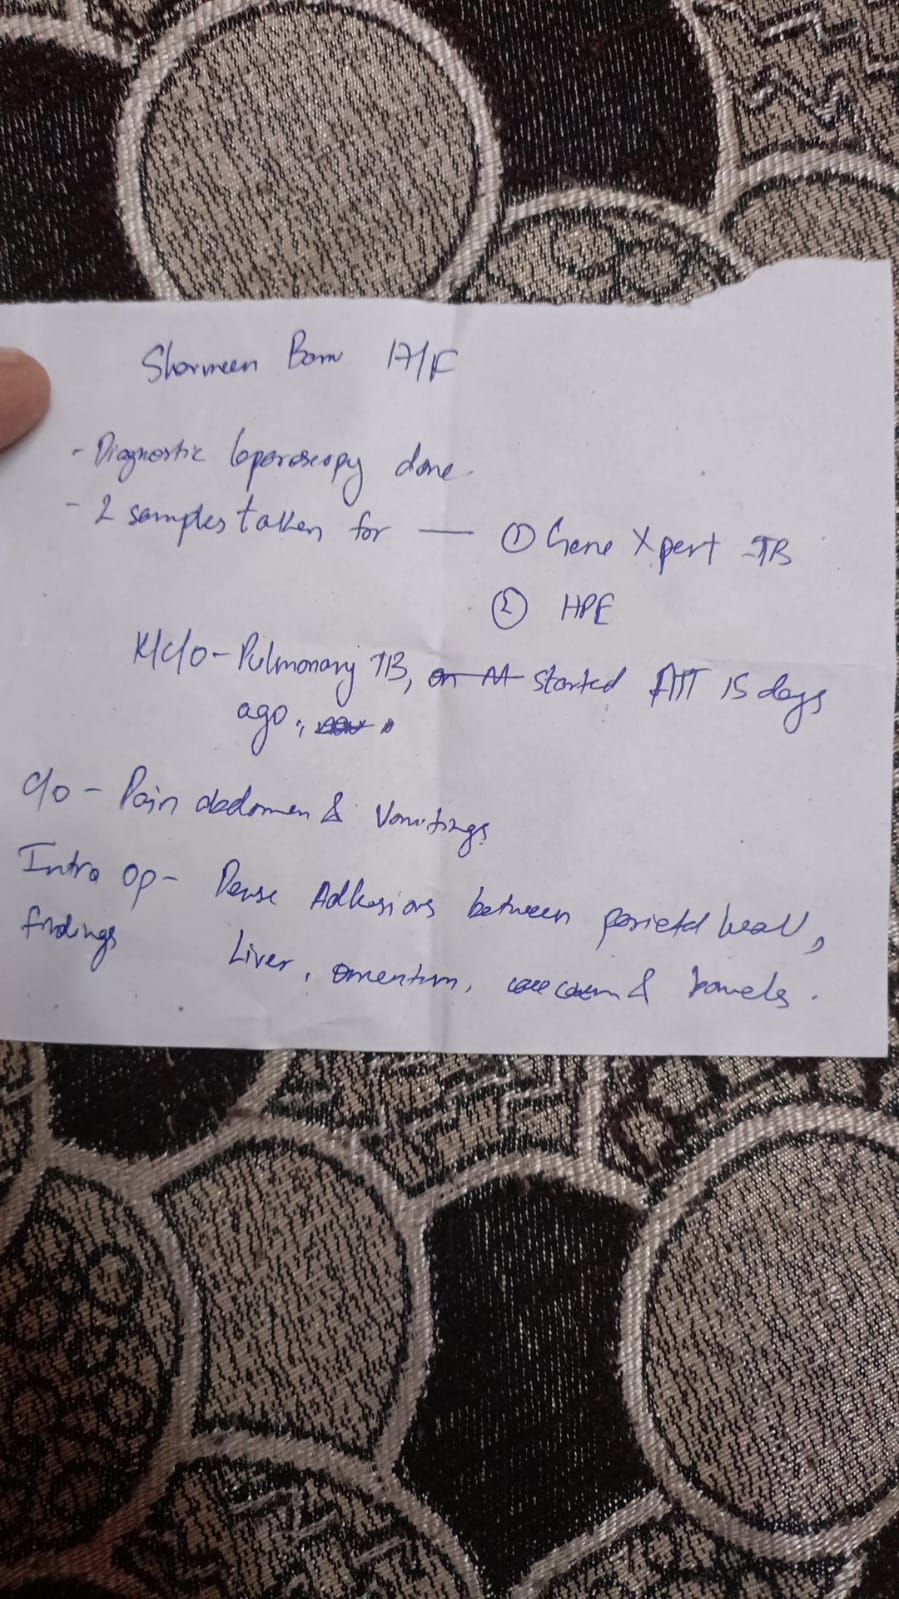 Sharmeen 17/F
- Diagnostic laparoscopy done.
- 2 samples taken for — ① Gene Xpert - TB
② HPE
K/c/o - Pulmonary TB, started ATT 15 days
ago.
C/o - Pain abdomen & Vomitings
Intra op - Dense Adhesions between parietal wall,
findings Liver, omentum, caecum & bowels.